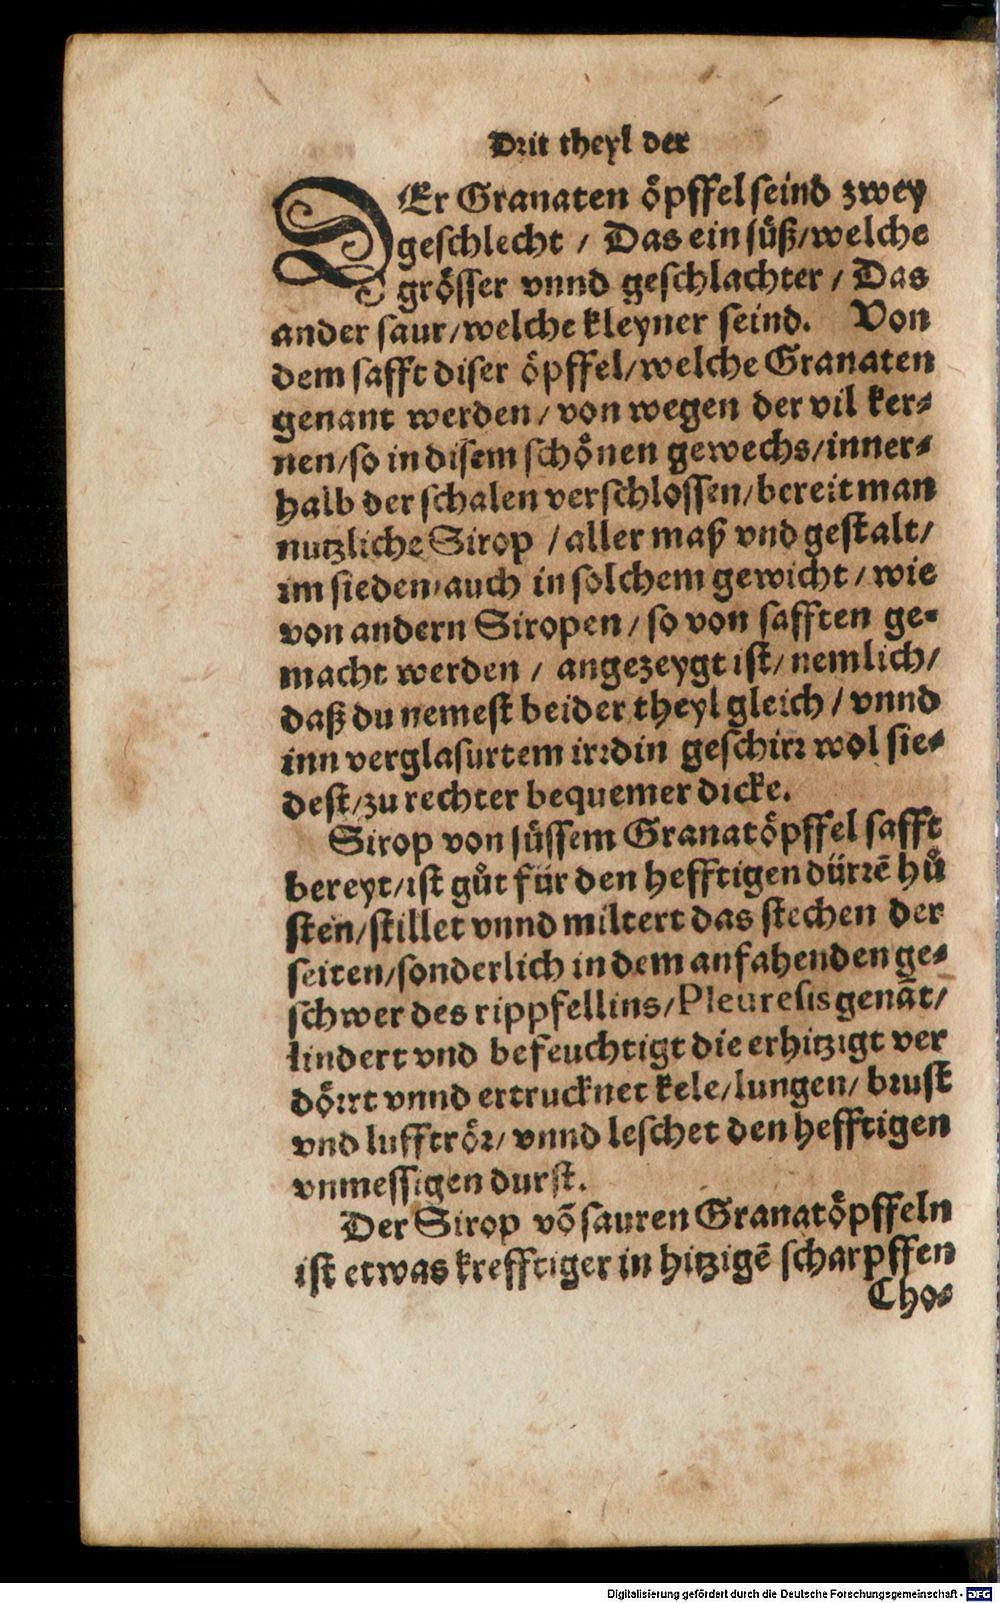 Drit theyl der
DEr Granaten öpffel seind zwey
geschlecht / Das ein süß/welche
grösser vnnd geschlachter / Das
ander saur/welche kleyner seind. Von
dem safft diser öpffel/welche Granaten
genant werden/von wegen der vil ker⸗
nen/so in disem schönen gewechs/inner⸗
halb der schalen verschlossen/bereit man
nutzliche Sirop /aller maß vnd gestalt/
im sieden/auch in solchem gewicht/wie
von andern Siropen/so von safften ge⸗
macht werden / angezeygt ist/nemlich/
daß du nemest beider theyl gleich/vnnd
inn verglasurtem irrdin geschirr wol sie⸗
dest/zu rechter bequemer dicke.
Sirop von süssem Granatöpffel safft
bereyt/ist gůt für den hefftigen dürrē hů
sten/stillet vnnd miltert das stechen der
seiten/sonderlich in dem anfahenden ge⸗
schwer des rippfellins/Pleuresis genāt/
lindert vnd befeuchtigt die erhitzigt ver
dörrt vnnd ertrucknet kele/lungen/brust
vnd lufftrör/vnnd leschet den hefftigen
vnmessigen durst.
Der Sirop vō sauren Granatöpffeln
ist etwas krefftiger in hitzigē scharpffen
Cho⸗
Digitalisierung gefördert durch die Deutsche Forschungsgemeinschaft - DFG